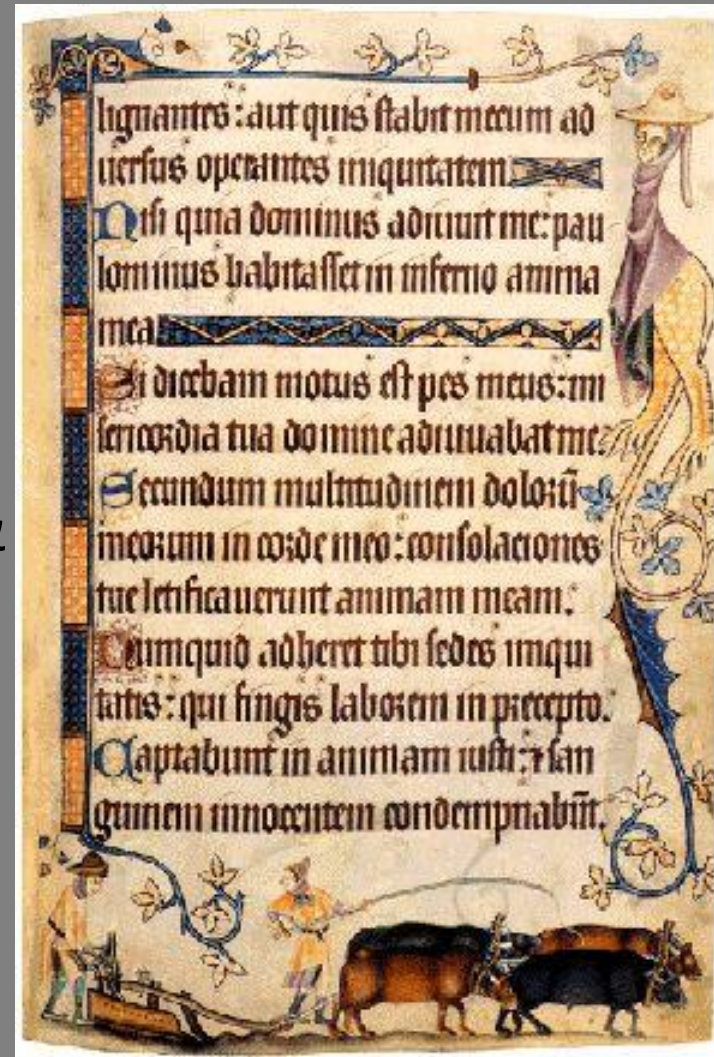 lignantes : aut quis stabit mecum ad
uersus operantes iniquitatem
Nisi quia dominus adiuuit me: pau
lominus habitasset in inferno anima
mea.
Si dicebam motus est pes meus: mi
sericordia tua domine adiuuabat me.
Secundum multitudinem dolorũ
meorum in corde meo: consolaciones
tue letificauerunt animam meam.
Numquid adheret tibi sedes iniqui
tatis: qui fingis laborem in precepto.
Captabunt in animam iusti: ⁊ san
guinem innocentem condempnabũt.